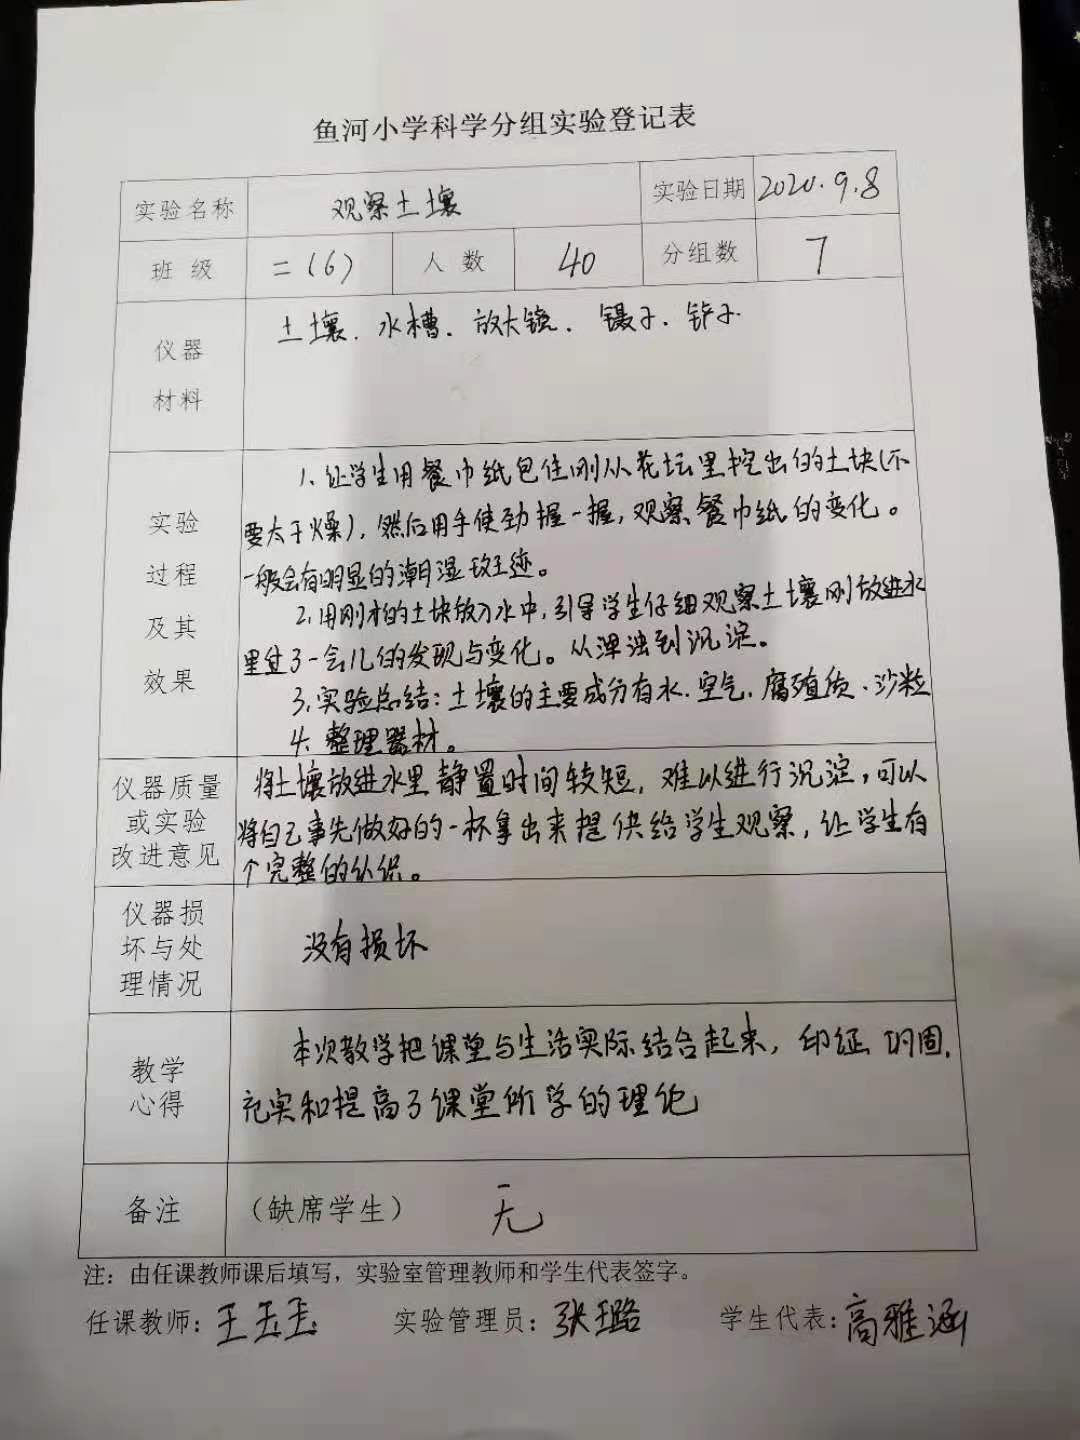 鱼河小学科学分组实验登记表
实验名称 观察土壤 实验日期 2020.9.8
班级 二(6) 人数 40 分组数 7
仪器材料 土壤、水槽、放大镜、镊子、铲子
实验过程及其效果
1、让学生用餐巾纸包住刚从花坛里挖出的土块(不
要太干燥),然后用手使劲握一握,观察餐巾纸的变化。
一般会有明显的潮湿斑迹。
2、用刚才的土块放入水中,引导学生仔细观察土壤刚放进水
里过了一会儿的发现与变化。从浑浊到沉淀。
3、实验总结:土壤的主要成分有水、空气、腐殖质、沙粒
4、整理器材。
仪器质量或实验改进意见
将土壤放进水里静置时间较短,难以进行沉淀,可以
将自己事先做好的一杯拿出来提供给学生观察,让学生有
个完整的认识。
仪器损坏与处理情况 没有损坏
教学心得
本次教学把课堂与生活实际结合起来,印证巩固,
充实和提高了课堂所学的理论
备注 (缺席学生) 无
注:由任课教师课后填写,实验室管理教师和学生代表签字。
任课教师:王玉玉 实验管理员:张璐 学生代表:高雅涵